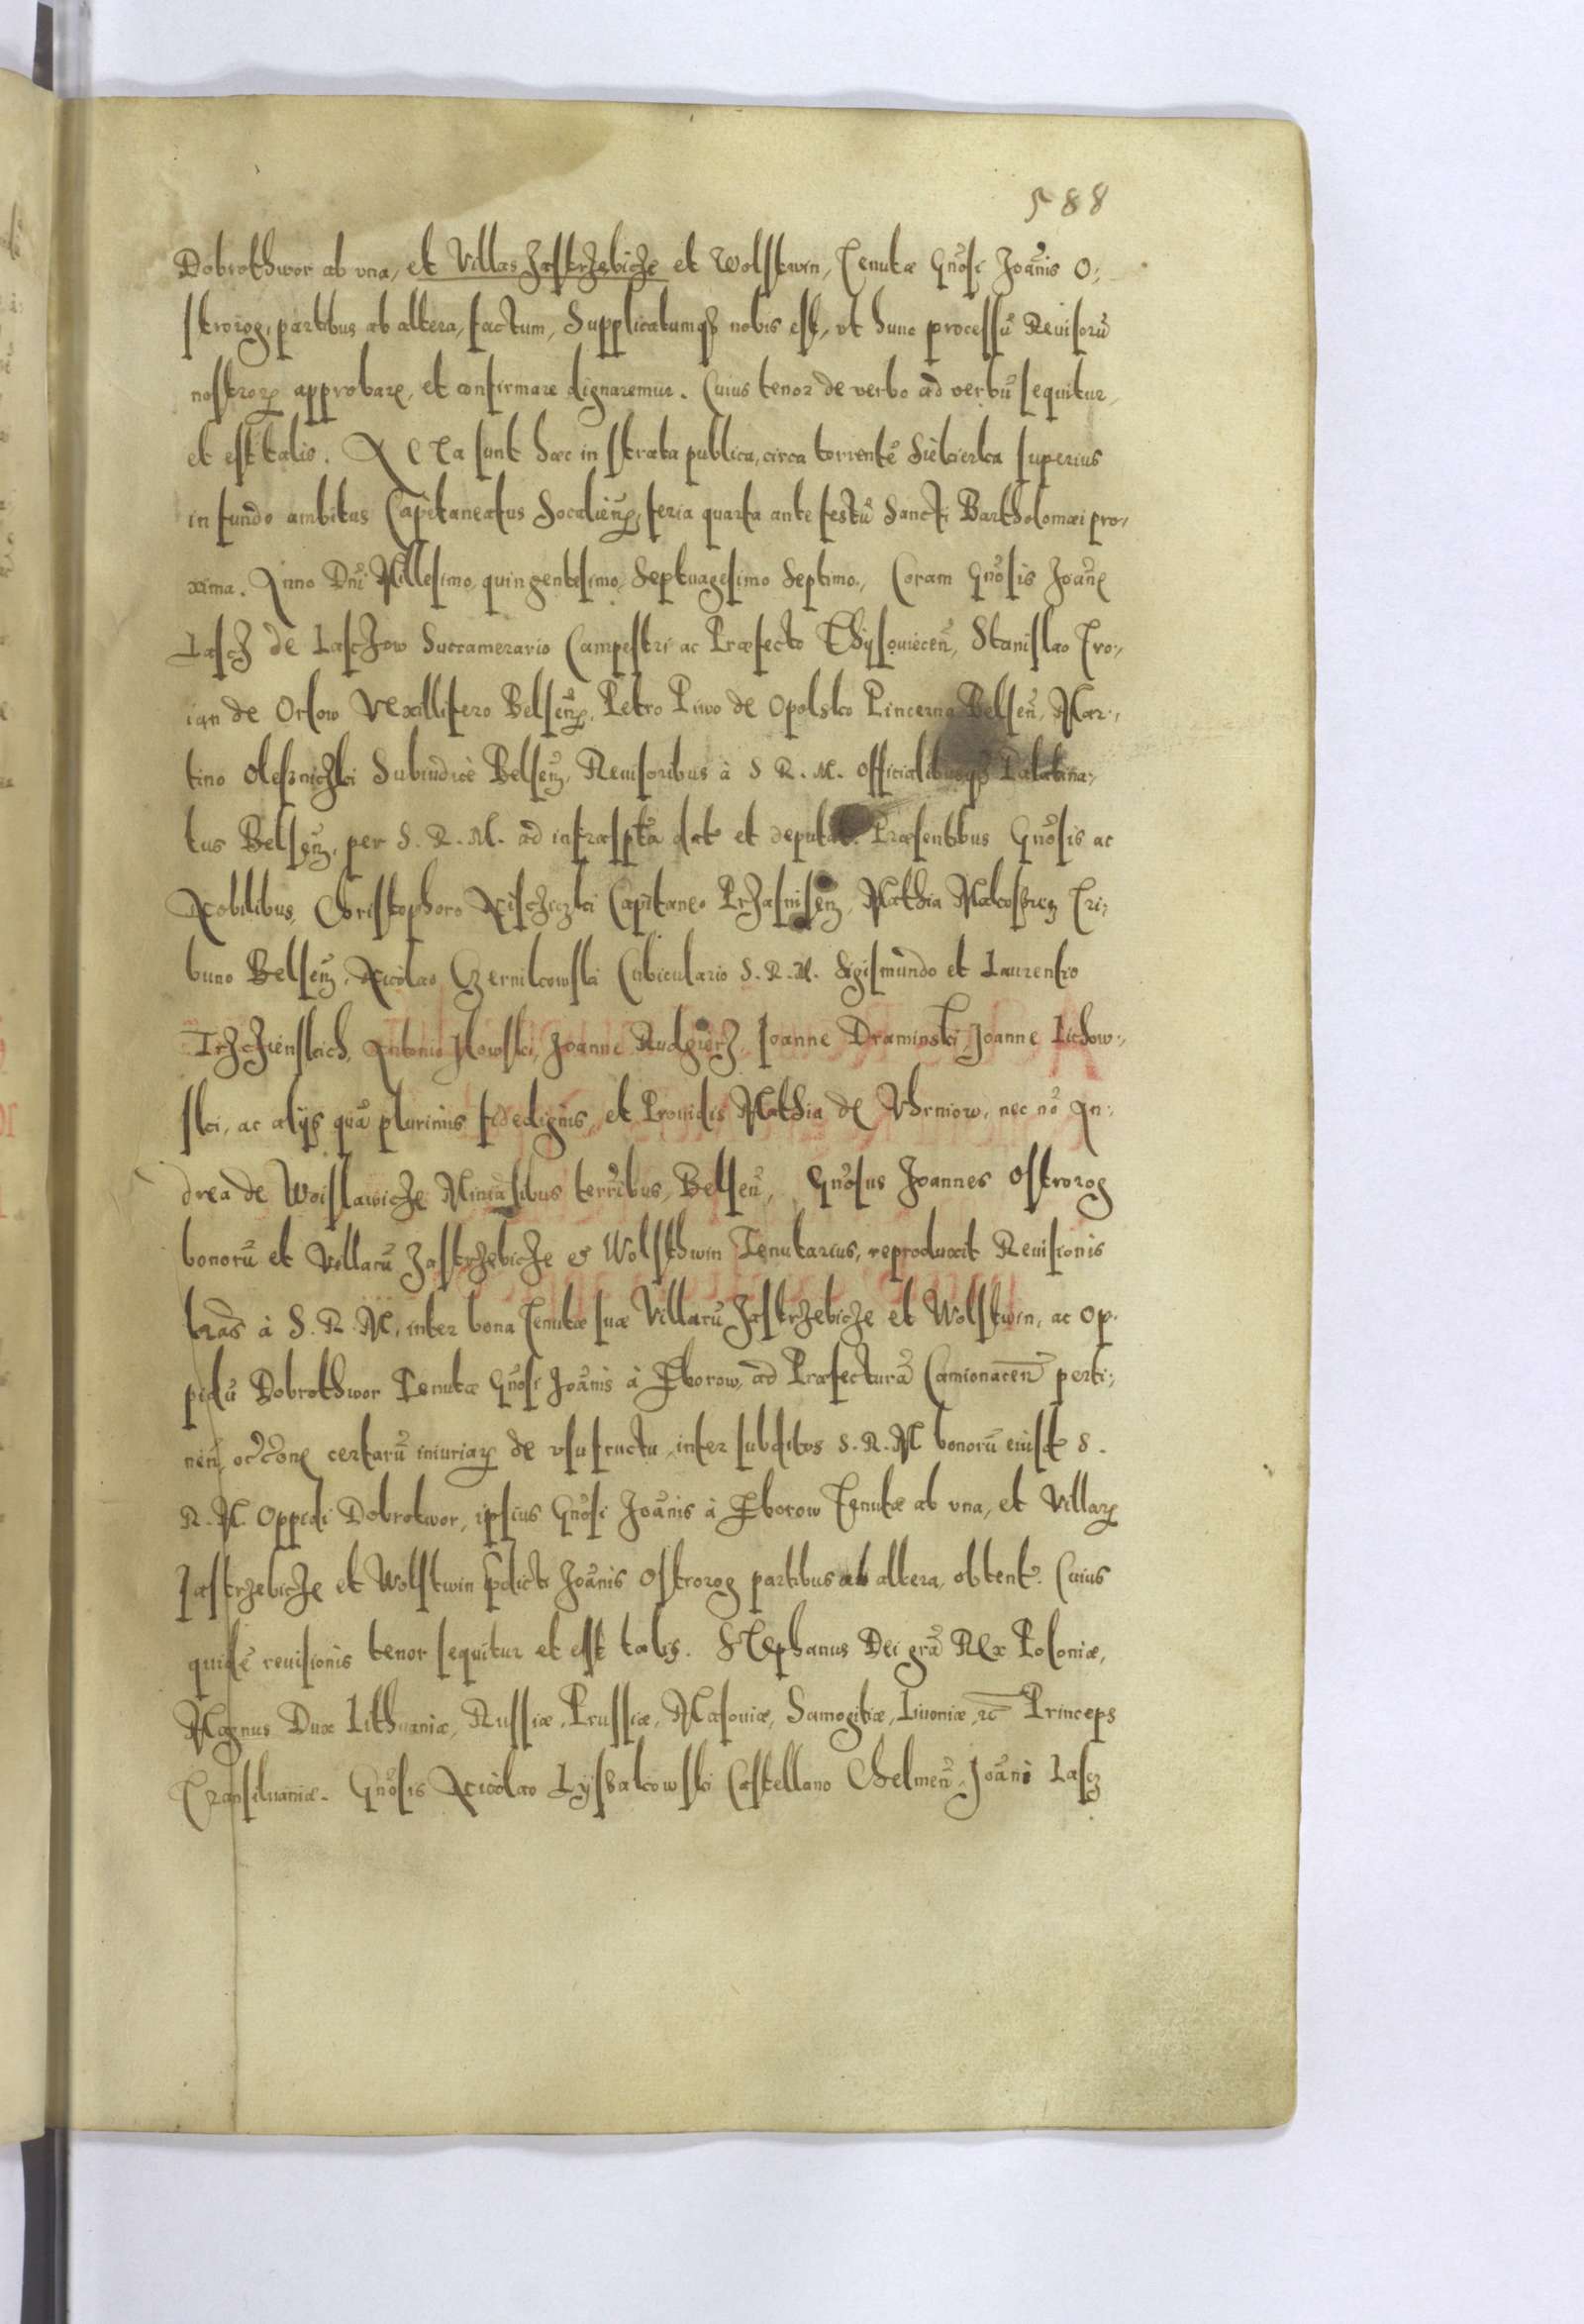 588
Dobrothwor ab vna, et Villas Jastrzebicze et Wolstwin, Tenutæ Gnōsi Joānis O-
strorog, partibus ab altera, factum, Supplicatumq3 nobis est, vt hunc processū Reuisorū
nostroꝝ approbare, et confirmare dignaremur. Cuius tenor de verbo ad verbū sequitur,
et est talis. ACTa sunt hæc in strata publica, circa torrentē Sielcierka superius
in fundo ambitus Capitaneatus Socalien̄, feria quarta ante festū Sancti Bartholomæi pro-
xima. Anno Dn̄i Millesimo, quingentesimo, Septuagesimo Septimo, Coram Gnōsis Joāne
Lasch de Laschow Succamerario Campestri ac Præfecto Thÿsouiecen̄, Stanislao Tro-
ian de Orlow Vexillifero Belsen̄, Petro Piwo de Opolsko Pincerna Belsen̄, Mar-
tino Olesznichki Subiudice Belsen̄, Reuisoribus à S. R. M. officialibusq3 Palatina-
tus Belsen̄, per S. R. M. ad infrasp̄ta dat et deputat. Præsentibus Gnōsis ac
Nobilibus, Christophoro Nischiczki Capitaneo Przasnisen̄, Mathia Malcoszicz Tri-
buno Belsen̄, Nicolao Czernikowski Cubiculario S. R. M. Sigismundo et Laurentio
Trzczienskich, Antonio Jlowski, Joanne Rudgierz, Joanne Draminski, Joanne Lichow-
ski, ac alÿs quā plurimis fidedignis, et Prouidis Mathia de Vhrniow, nec nō An-
drea de Woislawicze Minīalibus terrībus, Belsen̄, Gnōsus Joannes Ostrorog
bonorū et Villarū Jastrzebicze et Wolsthwin Tenutarius, reproduxit Reuisionis
lrās à S. R. M. inter bona Tenutæ suæ Villarū Jastrzebicze et Wolstwin, ac Op-
pidū Dobrothwor Tenutæ Gnōsi Joānis à Sborow, ad Præfecturā Camionacen̄ perti-
nen̄, occ̄one certarū iniuriaꝝ de vsufructu inter subditos S. R. M. bonorū eiusd S.
R. M. Oppidi Dobrotwor, ipsius Gnōsi Joānis à Sborow Tenutæ ab vna, et Villaꝝ
Jastrzebicze et Wolstwin p̄dicti Joānis Ostrorog partibus ab altera, obtent. Cuius
quidē reuisionis tenor sequitur et est talis. STephanus Dei grā REx Poloniæ,
Magnus Dux Lithuaniæ, Russiæ, Prussiæ, Masouiæ, Samogitiæ, Liuoniæ, ꝛc Princeps
Transiluaniæ. Gnōsis Nicolao Lÿsakowski Castellano Chelmen̄, Joāni Lascz